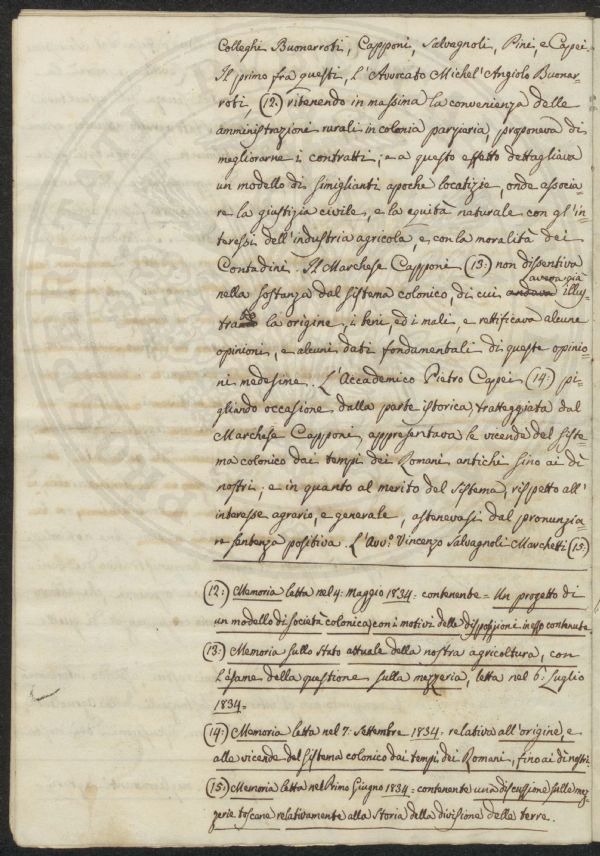 Colleghi Buonarroti, Capponi, Salvagnoli, Pini, e Capei.
Il primo fra questi, l'Avvocato Michel'Angiolo Buonar=
roti, (12:) ritenendo in massima la convenienza delle
amministrazioni rurali in colonia parziaria, proponeva di
megliorarne i contratti; e a questo effetto dettagliava
un modello di simiglianti apoche locatizie, onde associa=
re la giustizia civile, e la equità naturale con gl'in=
teressi dell'industria agricola, e con la moralità dei
Contadini. Il Marchese Capponi (13:) non dissentiva
nella sostanza dal sistema colonico, di cui andava aveva già illus=
trato la origine, i beni, ed i mali, e rettificava alcune
opinioni, e alcuni dati fondamentali di queste opinio=
ni medesime. L'Accademico Pietro Capei (14:) pi=
gliando occasione dalla parte istorica, tratteggiata dal
Marchese Capponi, appresentava le vicende del siste=
ma colonico dai tempi dei Romani antichi sino ai dì
nostri; e in quanto al merito del sistema, rispetto all'
interesse agrario, e generale, astenevasi dal pronunzia=
re sentenza positiva. L'Avv.º Vincenzo Salvagnoli Marchetti (15:)
(12:) Memoria letta nel 4: Maggio 1834: contenente = Un progetto di
un modello di società colonica, con i motivi delle disposizioni in esso contenute.
(13:) Memoria sullo stato attuale della nostra agricoltura, con
l'esame della questione sulla mezzeria, letta nel 6: Luglio
1834=
(14:) Memoria letta nel 7: Settembre 1834: relativa all'origine, e
alle vicende del sistema colonico dai tempi dei Romani, fino ai dì nostri.
(15:) Memoria letta nel Primo Giugno 1834: contenente una discussione sulle mez=
zerie toscane relativamente alla Storia della divisione delle terre.